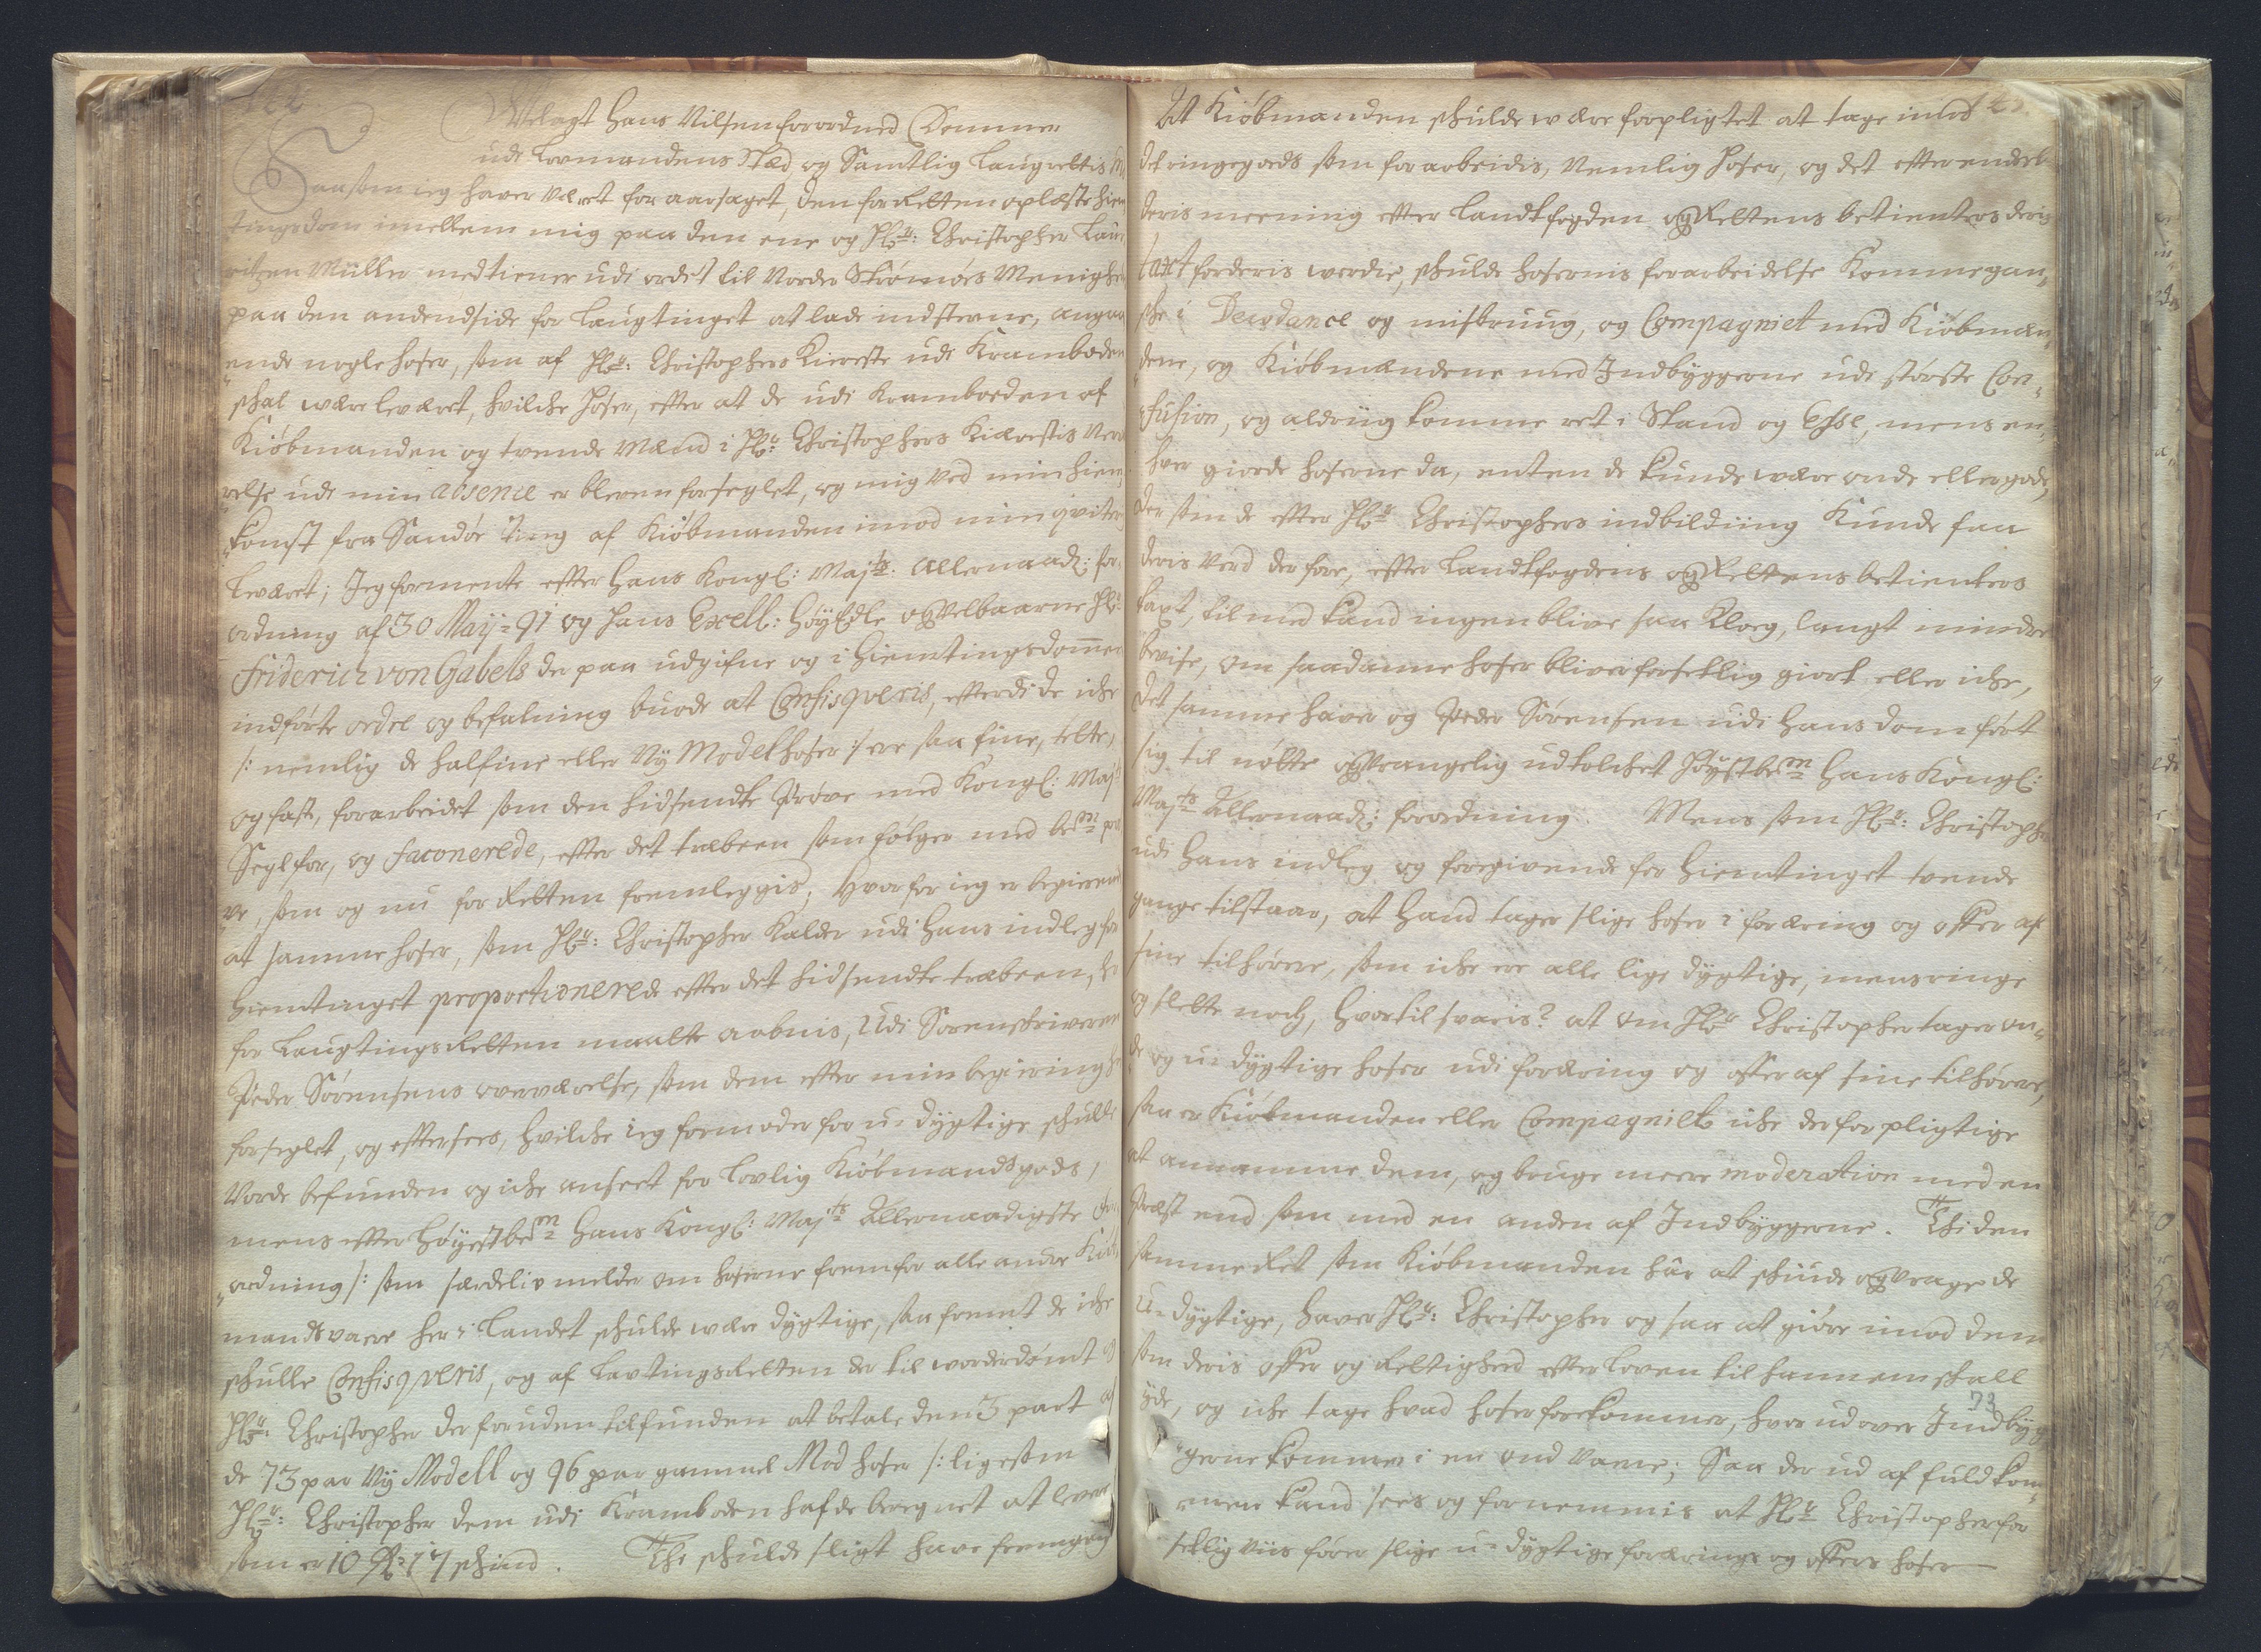 Velagt Hans Nilsen forordned Dommer
udi Lovmandens Sted, og Samtlig Laugrettis
Saasom ieg haver veret foraarsaget, den for Retten oplæste hiem
tingsdom imellem mig paa den ene og Hr: Christopher Lau
ritzen Müller medtiener udi ordet til Norder Strømøes Menighed
paa den andendside for Laugtinget at lade indstevne, angaa
ende nogle hoser, som af Hr: Christophers Kiereste udi Kramboden
schal være leværet, hvilche Hoser, efter at de udi Kramboeden af
Kiøbmanden og tvende Mænd i Hr: Christophers Kiærestis Nerv
relse udi min absence er bleven forseglet, og mig ved min hiem
komst fra Sandøe Ting af Kiøbmanden imod min qvitering
Leværet; Jeg formente effter Hans Kongl: Majts. Allernaad: for
ordning af 30 Maij = 91 og Hans Excell: HøyEdle og Velbaarne Hr
Friderich von Gabels der paa udgifne og i Hiemtingsdommen
indførte ordre og befalning burde at Confisqveris, efterdi de iche
/: nemlig de halfine eller Ny Modelhoser :/ ere saa fine, tette,
og faste, forarbeidet som den hidsendte Prøve med Kongl: Majts
Segl for, og faconerede, efter det træbeen som følger med bemte prø
ve, som og nu for Retten fremleggis, Hvorfor ieg er begierende
at samme hoser, som Hr: Christopher kalder udi Hans indleg for
Hiemtinget proportionerede efter det hidsendte træbeen,
for Laugtings Retten maatte aabnis, Udi Sorenskriveren
Peder Sørensens overværelse, som dem efter min begiering
forseglet, og eftersees, hvilche ieg formoder for u-dygtige schulle
Vorde befunden og iche anseet for lovlig Kiøbmandsgods,
mens efter Høyestbemte Hans Kongl: Majts Allernaadigste For
ordning /: som særdelis melder om hoserne fremfor alle andre Kiøb
mands vare her i Landet schulde være dygtige, saa fremt de iche
schulle Confisqveris, og af Lavtings Retten der til vorder dømt og
Hr: Christopher der foruden tilfunden at betale den 3 part af
de 73 par Ny Modell og 96 par gammel Mod hoser /: ligesom
Hr: Christopher dem udi Kramboden hafde beregnet at levere
som er 10 Gl: 17 schind. Thi schulde sligt have fremgang
At Kiøbmanden schulde være forpligtet at tage imod
det ringe gods som forarbeidis, Nemlig Hoser, og det efter endeel
deris meening efter Landfogden og Rettens betienters deris
taxt for deris verdie, schulde hosernis forarbeidelse komme gan
sche i Decadance og misbruug, og Compagniet med Kiøbmæn
dene, og Kiøbmændene med Indbyggerne udi største Con
fusion, og aldrüg komme ret i Stand og Esse, mens en
hver giorde hoserne da, enten de kunde være onde eller gode,
der som de efter Hr Christophers indbilding kunde faa
deris Verd derfore, efter Landfogdens og Rettens betienters
taxt, til med kand ingen blive saa Kloeg, langt mindre
bevise, om saadanne hoser bliver forsetlig giort eller iche,
det samme haver og Peder Sørensen udi Hans dom ført
sig til nøtte og vrangelig udtolchet Høystbemte Hans Kongl:
Majts Allernaad: forordning. Mens som Hr: Christopher
udi Hans indleg og foregivende for Hiemtinget tvende
gange tilstaar, at Hand tager slige hoser i foræring og offer af
sine tilhørere, som iche ere alle lige dygtige, mens ringe
og slette noch, Hvortil svaris? at om Hr Christopher tager on
de og u-dygtige hoser udi foræring og offer af sine tilhørere,
saa er Kiøbmanden eller Compagniet iche der for pligtige
at annamme dem, og bruge meere moderation med en
Præst end som med en anden af Indbyggerne. Thi den
samme Ret som Kiøbmanden har at schiude og vrage de
u-dygtige, haver Hr: Christopher og saa at giøre imod dem
som deris offer og Rettighed efter Loven til hannem schall
yde, og iche tage hvad hoser forekommer, hvor ud over Indbyg
gerne kommer i en ond Vane; Saa der ud af fuldkom
men kand sees og fornemmis at Hr Christopher for
setlig viis fører slige u-dygtige forærings og offers hoser
73